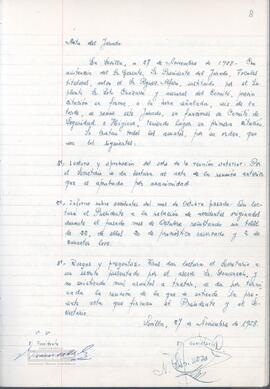 8
Acta del Jurado
En Sevilla, a 27 de Noviembre de 1978. Con
asistencia del Sr Gerente, Sr Presidente del Jurado, Vocales
titulares, salvo el Sr. Alfaro, sustituido por el Su-
plente Sr. y accesoral del Comité, previa
citación en forma, a la hora señalada, seis de la
tarde, se reune este Jurado, en funciones de Comité de
Seguridad e Higiene, teniendo lugar en primera citación
Se tratan todos los asuntos, por su orden, que
son los siguientes:
1º- Lectura y aprobación del acta de la reunión anterior: Por
el Secretario se da lectura al acta de la reunión anterior
que es aprobada por unanimidad
2º- Informe sobre accidentes del mes de Octubre pasado: Da lec-
tura el Presidente a la relación de accidentes originados
durante el pasado mes de Octubre resultando un total
de 22, de ellos 20 de pronóstico reservado y 2 de
leves.
3º- Ruegos y preguntas: Tras dar lectura el Secretario a
un escrito presentado por el
no existiendo más asuntos a tratar, se da por termi-
nada la reunión de la que se extiende la pre-
sente acta que firman el Presidente y el Se-
cretario.
Sevilla, 27 de Noviembre de 1978.
Vº Bº
El Presidente
El Secretario